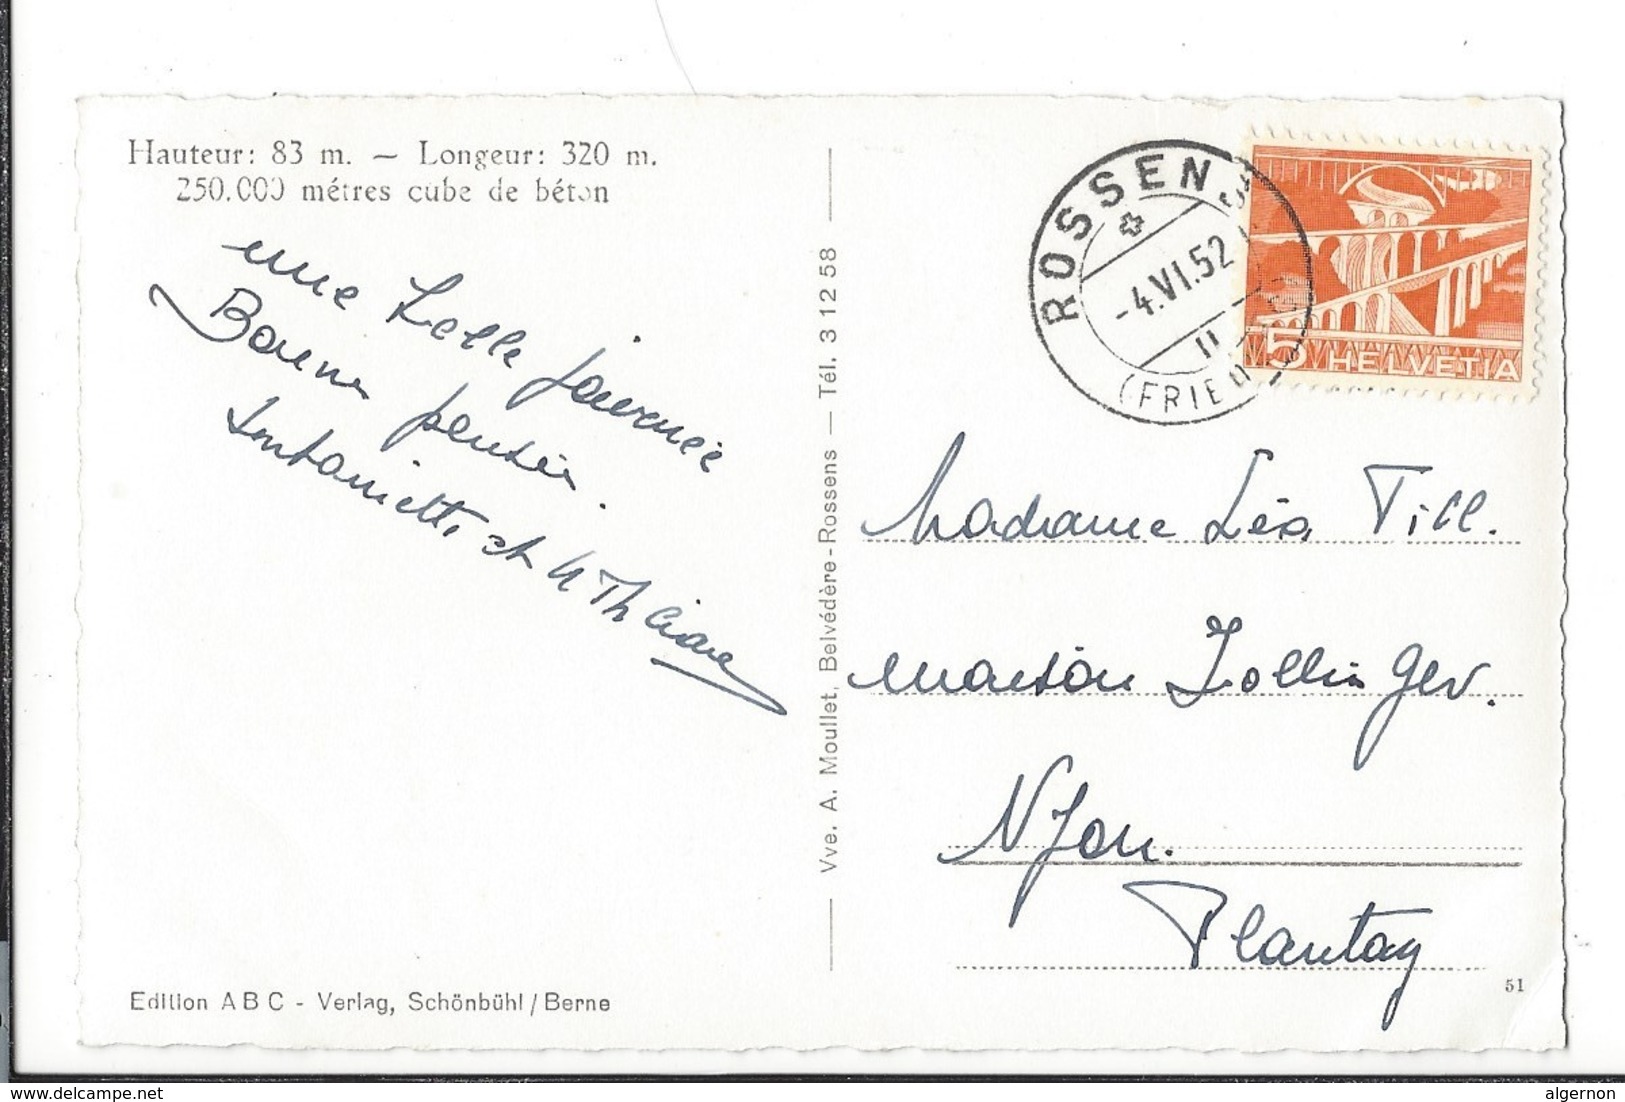 Hauteur: 83 m. — Longeur: 320 m.
250.000 métres cube de béton
une belle journée
Bonne pensée.
Antoinette et
Edition A B C - Verlag, Schönbühl / Berne
Vve. A. Moullet, Belvédère-Rossens — Tél. 3 12 58
ROSSENS
-4.VI.52
II
(FRIBOURG)
5 HELVETIA
Madame Léa Till.
maison Zollinger.
Nyon.
Plantay
51
www.delcampe.net
algernon